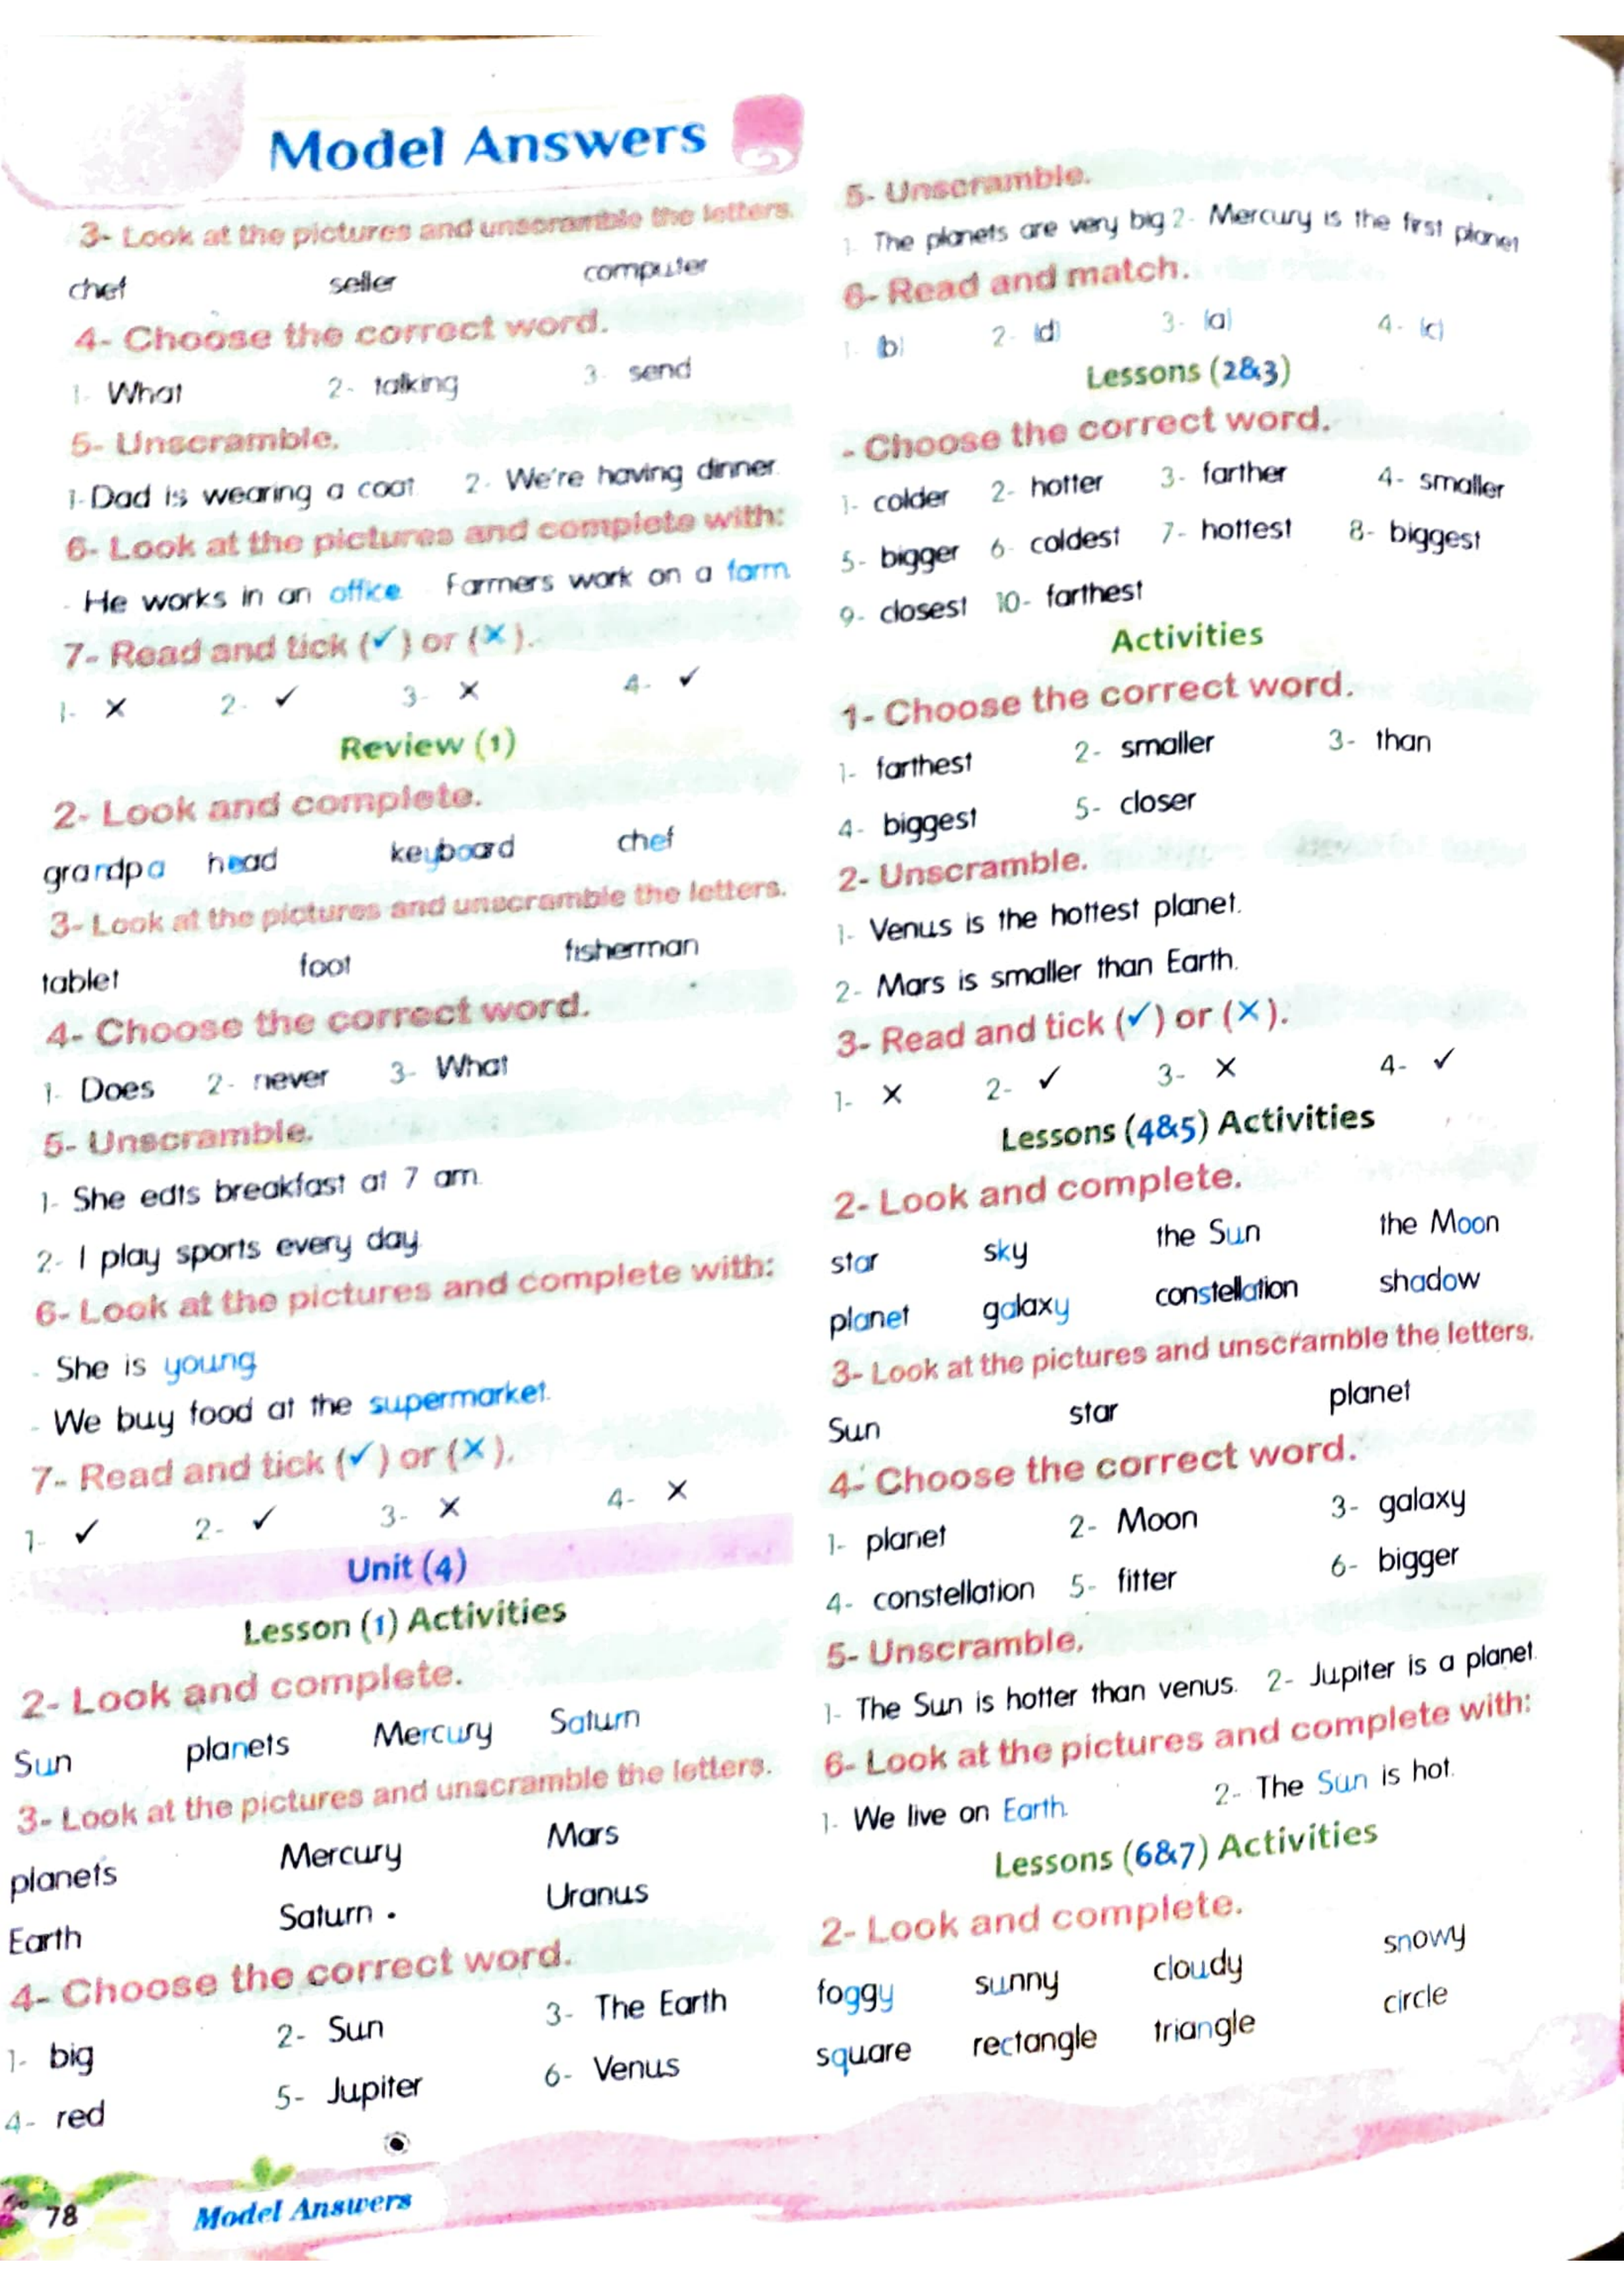 Model Answers
3- Look at the pictures and unscramble the letters.
chef seller computer
4- Choose the correct word.
1- What 2- talking 3- send
5- Unscramble.
1- Dad is wearing a coat. 2- We're having dinner.
6- Look at the pictures and complete with:
- He works in an office. - Farmers work on a farm.
7- Read and tick (✓) or (✗).
1- ✗ 2- ✓ 3- ✗ 4- ✓
Review (1)
2- Look and complete.
grandpa head keyboard chef
3- Look at the pictures and unscramble the letters.
tablet foot fisherman
4- Choose the correct word.
1- Does 2- never 3- What
5- Unscramble.
1- She eats breakfast at 7 am.
2- I play sports every day.
6- Look at the pictures and complete with:
- She is young
- We buy food at the supermarket.
7- Read and tick (✓) or (✗).
1- ✓ 2- ✓ 3- ✗ 4- ✗
Unit (4)
Lesson (1) Activities
2- Look and complete.
Sun planets Mercury Saturn
3- Look at the pictures and unscramble the letters.
planets Mercury Mars
Earth Saturn . Uranus
4- Choose the correct word.
1- big 2- Sun 3- The Earth
4- red 5- Jupiter 6- Venus
5- Unscramble.
1- The planets are very big 2- Mercury is the first planet
6- Read and match.
1- (b) 2- (d) 3- (a) 4- (c)
Lessons (2&3)
- Choose the correct word.
1- colder 2- hotter 3- farther 4- smaller
5- bigger 6- coldest 7- hottest 8- biggest
9- closest 10- farthest
Activities
1- Choose the correct word.
1- farthest 2- smaller 3- than
4- biggest 5- closer
2- Unscramble.
1- Venus is the hottest planet.
2- Mars is smaller than Earth.
3- Read and tick (✓) or (✗).
1- ✗ 2- ✓ 3- ✗ 4- ✓
Lessons (4&5) Activities
2- Look and complete.
star sky the Sun the Moon
planet galaxy constellation shadow
3- Look at the pictures and unscramble the letters.
Sun star planet
4- Choose the correct word.
1- planet 2- Moon 3- galaxy
4- constellation 5- fitter 6- bigger
5- Unscramble.
1- The Sun is hotter than venus. 2- Jupiter is a planet.
6- Look at the pictures and complete with:
1- We live on Earth. 2- The Sun is hot.
Lessons (6&7) Activities
2- Look and complete.
foggy sunny cloudy snowy
square rectangle triangle circle
78 Model Answers